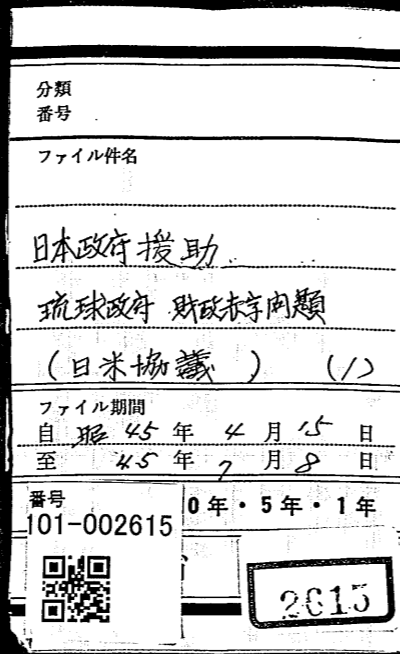 分類
番号
ファイル件名
日本政府援助
琉球政府 財政赤字問題
(日米協議) (1)
ファイル期間
自 昭 45 年 4 月 15 日
至 45 年 7 月 8 日
番号
101-002615
0年・5年・1年
2615